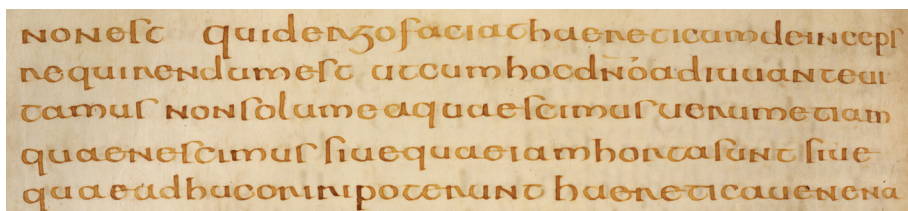 non est quid ergo faciat haereticum deinceps
requirendum est ut cum hoc dno adiuuante ui
tamus non solum ea quae scimus uerum etiam
quae nescimus siue quae iam horta sunt siue
quae adhuc oriri poterunt haeretica uenena